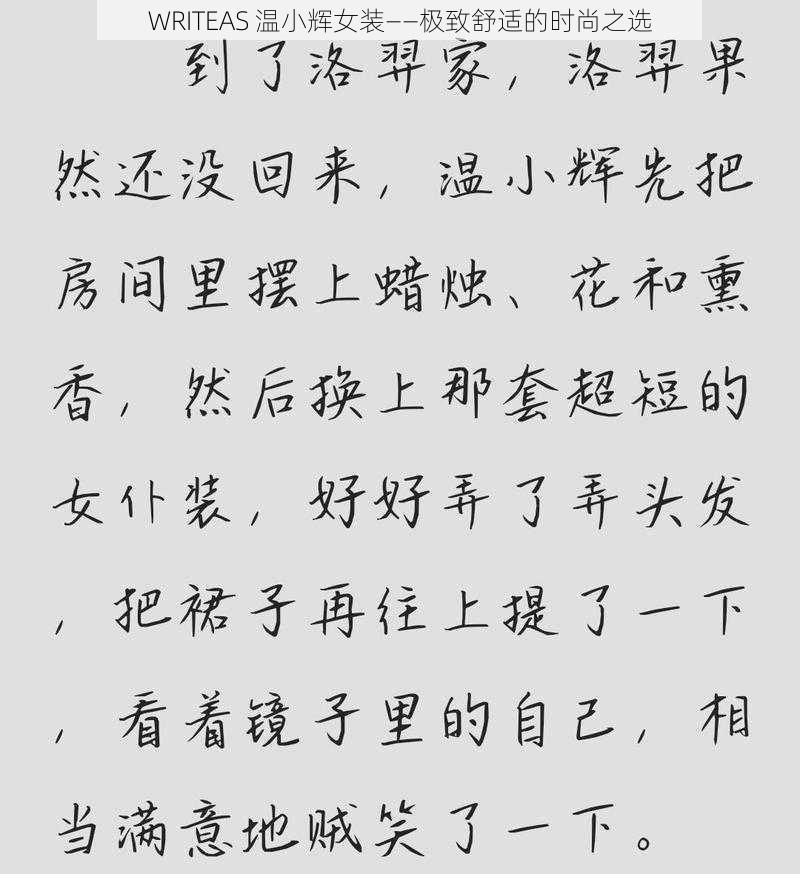 WRITEAS 温小辉女装——极致舒适的时尚之选
到了洛羿家，洛羿果
然还没回来，温小辉先把
房间里摆上蜡烛、花和熏
香，然后换上那套超短的
女仆装，好好弄了弄头发
，把裙子再往上提了一下
，看着镜子里的自己，相
当满意地贼笑了一下。